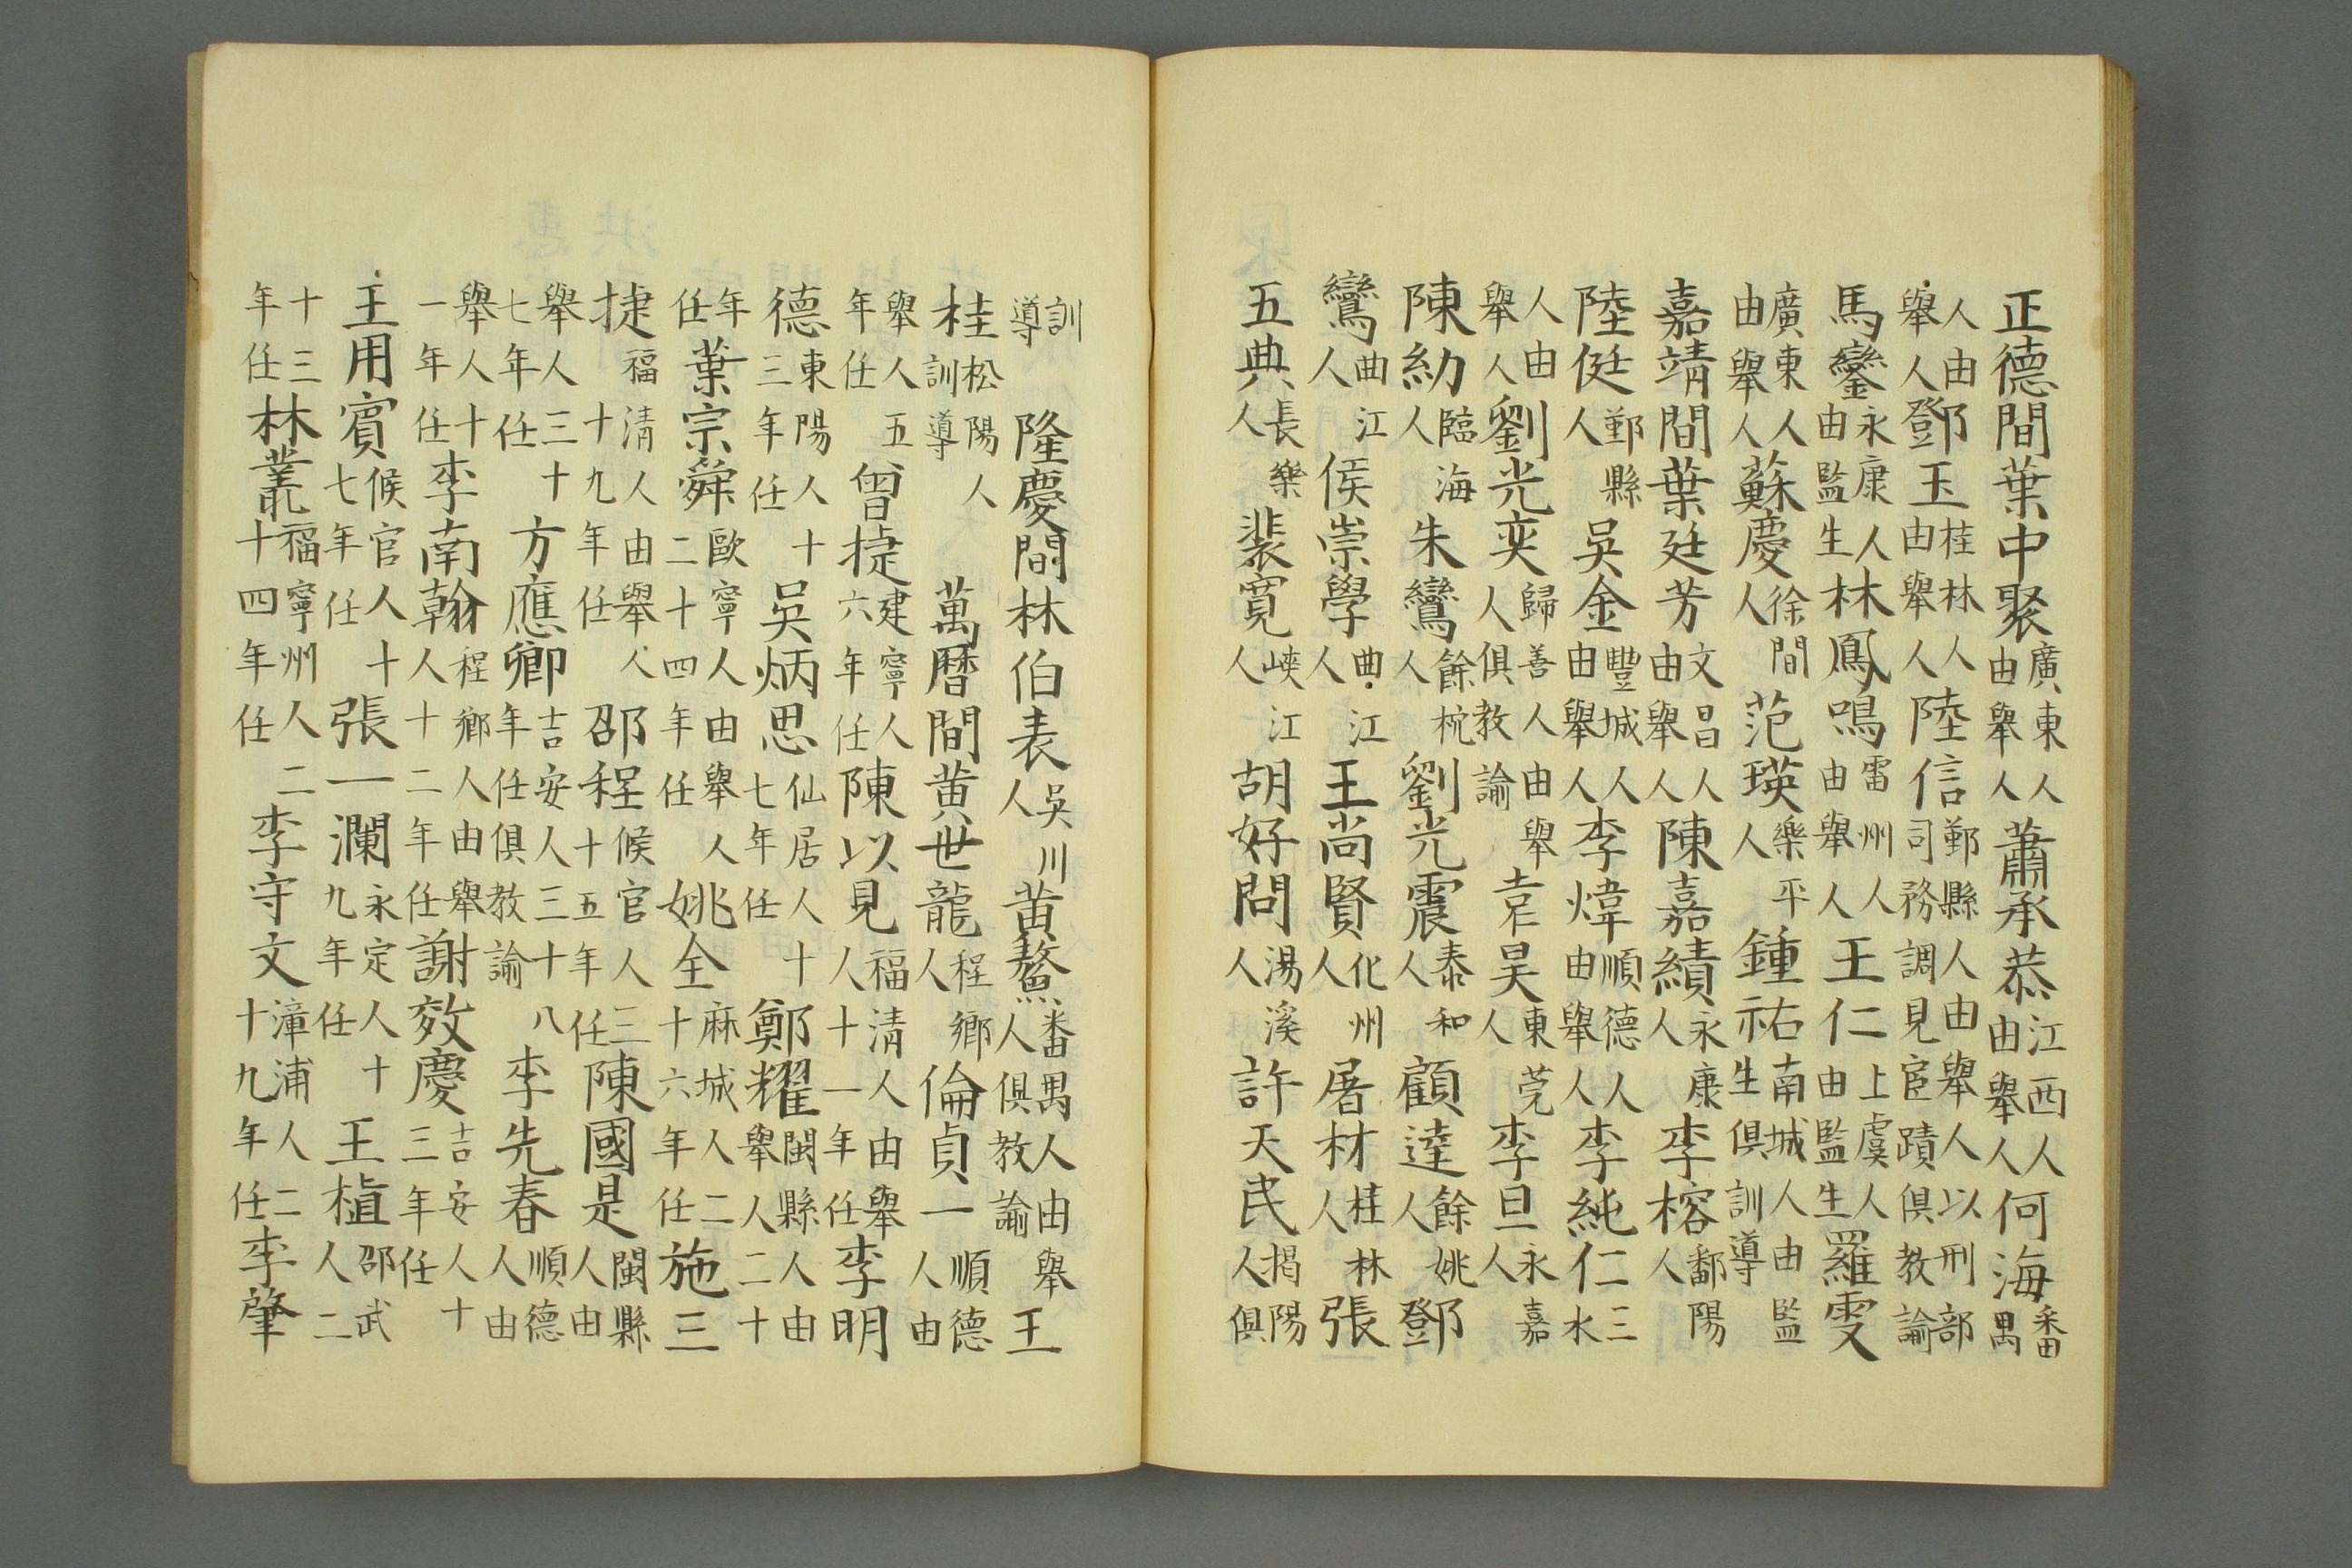 正德間葉中聚廣東人由舉人蕭承恭江西人由舉人何海番禺
人由舉人鄧玉桂林人由舉人陸信鄞縣人由舉人以刑部司務調見宦蹟俱教諭
馬鑾永康人由監生林鳳鳴雷州人由舉人王仁上虞人由監生羅雯
廣東人由舉人蘇慶徐間人范瑛樂平人鍾祐南城人由監生俱訓導
嘉靖間葉廷芳文昌人由舉人陳嘉績永康人李榕鄱陽人
陸侹鄞縣人吳金豐城人由舉人李煒順德人由舉人李純仁三水
人由舉人劉光奕歸善人由舉人俱教諭袁昊東莞人李旦永嘉人
陳紉臨海人朱鸞餘杭人劉光震泰和人顧達餘姚人鄧
鸞曲江人侯崇學曲江人王尚賢化州人屠材桂林人張
五典長樂人裴寬峽江人胡好問湯溪人許天民揭陽人俱
訓導　隆慶間林伯表吳川人黃鰲番禺人由舉人俱教諭王
桂松陽人訓導　萬曆間黃世龍程鄉人倫貞一順德人由
舉人五年任曾捷建寧人六年任陳以見福清人由舉人十一年任李明
德東陽人十三年任吳炳思仙居人十七年任鄭耀閩縣人由舉人二十
年任葉宗舜歐寧人由舉人二十四年任姚全麻城人二十六年任施三
捷福清人由舉人十九年任邵程候官人三十五年任陳國是閩縣人由
舉人三十七年任方應卿吉安人三十八年任俱教諭李先春順德人由
舉人十一年任李南翰程鄉人由舉人十二年任謝效慶吉安人十三年任
王用賓候官人十七年任張一瀾永定人十九年任王植邵武人二
十三年任林叢福寧州人二十四年任李守文漳浦人二十九年任李肇